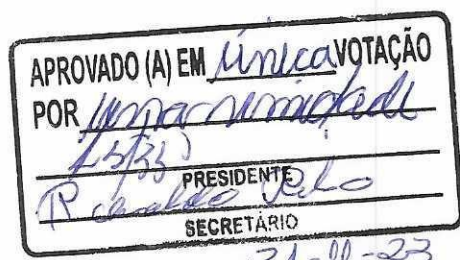 APROVADO (A) EM única VOTAÇÃO
POR unanimidade
PRESIDENTE
SECRETÁRIO
21-11-23